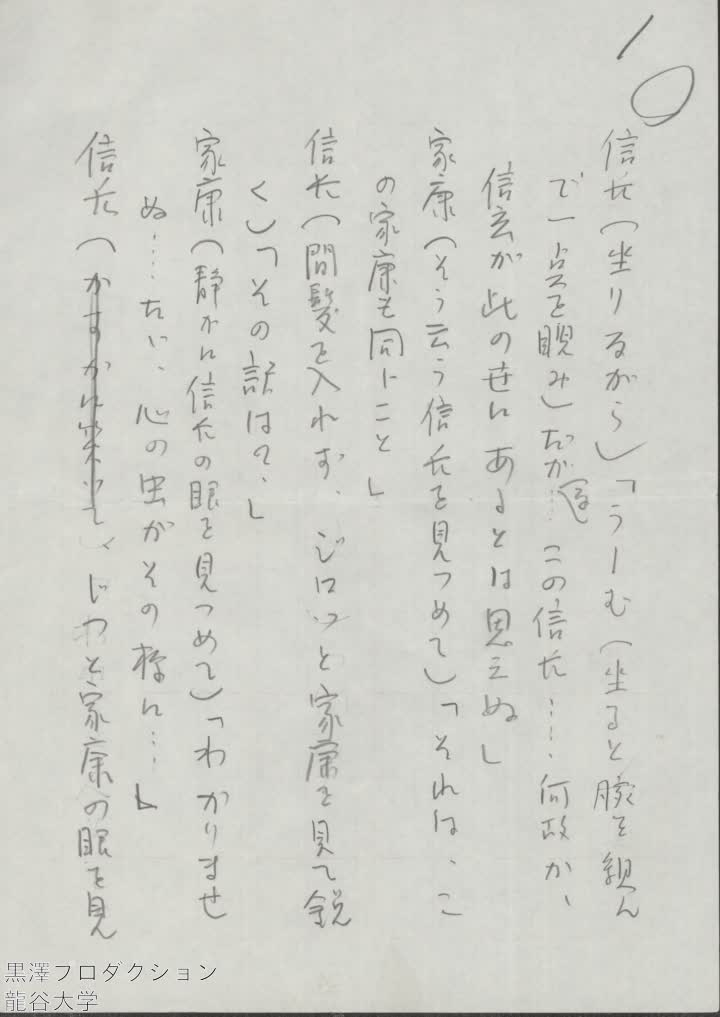 10
信長（坐りながら）「うーむ（坐ると腕を組ん
で一点を睨み）だが…この信長……何故か、
信玄が此の世にあるとは思えぬ」
家康（そう云う信長を見つめて）「それは、こ
の家康も同じこと」
信長（間髪を入れず、ジロッと家康を見て鋭
く）「その訳はの、」
家康（静かに信長の眼を見つめて）「わかりませ
ぬ……たゞ、心の虫がその様に…」
信長（かすかに笑って、じっと家康の眼を見
黒澤プロダクション
龍谷大学